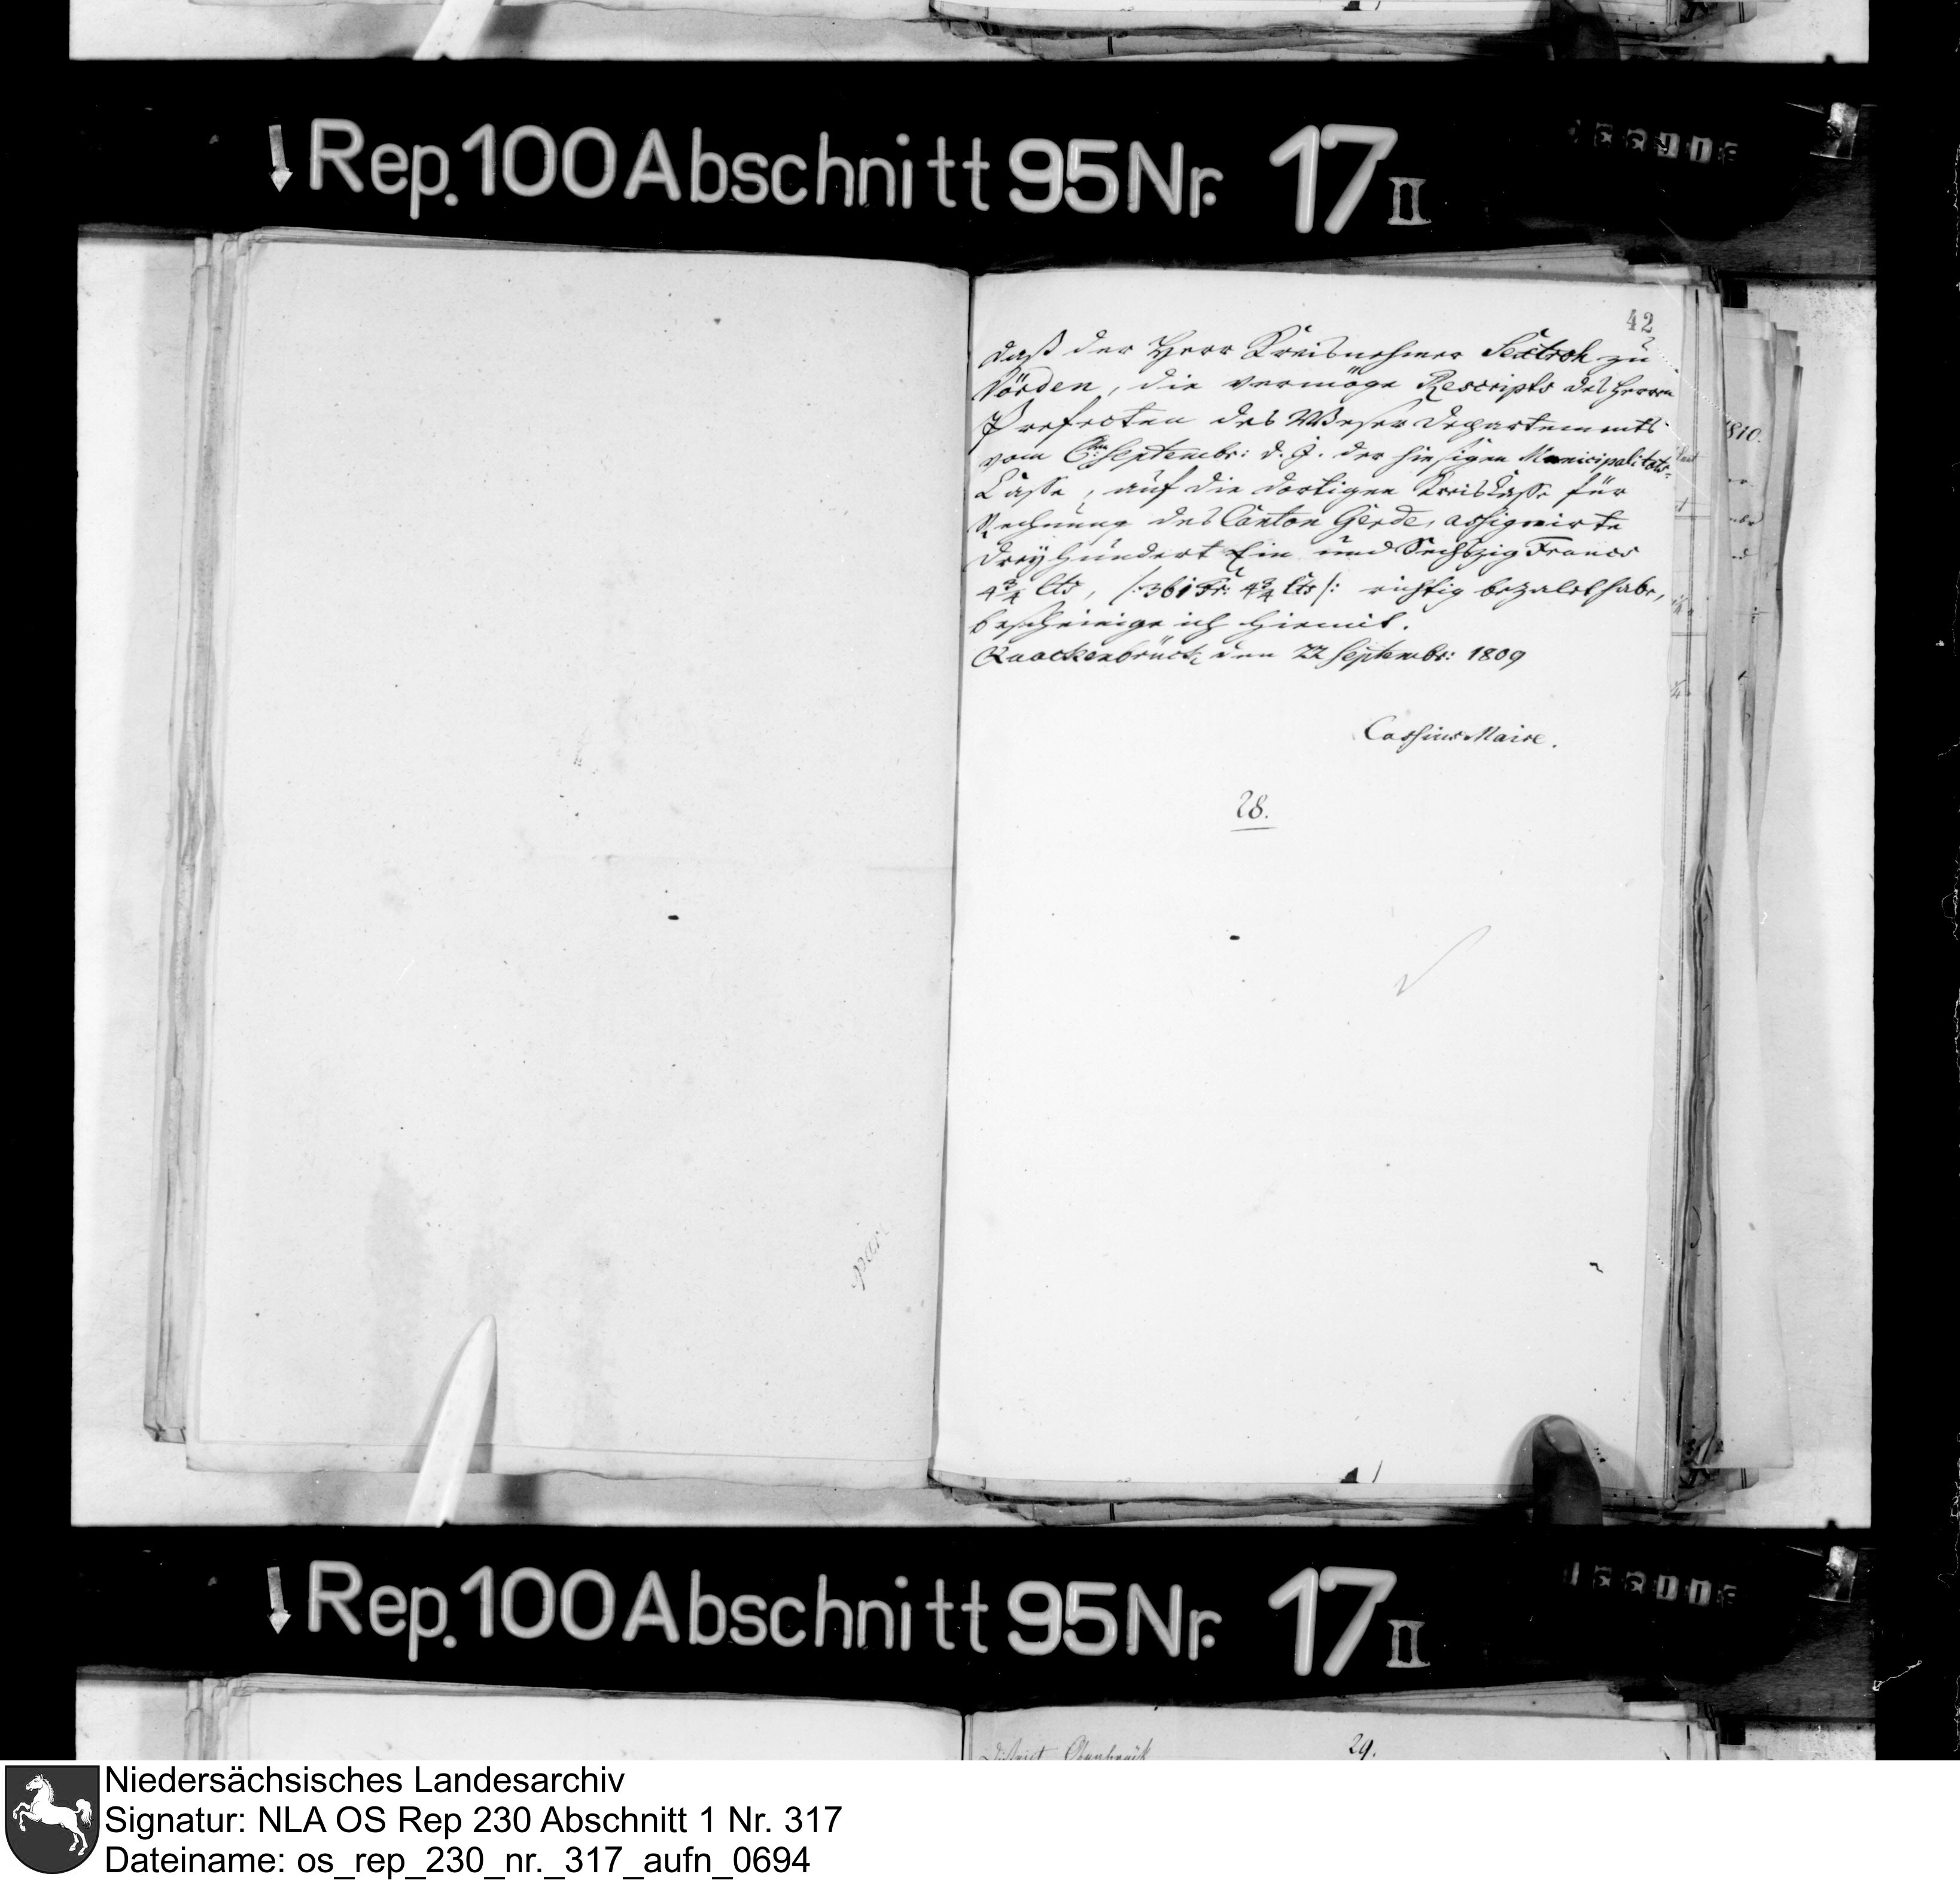 ↓ Rep. 100 Abschnitt 95 Nr. 17 II
42
daß der Herr Kreisnehmer Sextroh zu
Vörden, die vermöge Rescripts des Herrn
Prefecten des Weser Departements
vom 6ten Septembr: d. J. der hiesigen Municipalitäts-
Casse, auf die dortigen Kreiskasse für
Rechnung des Canton Gerde, assignirte
Dreyhundert Ein und Sechszig Francs
4 3/4 Cts, /: 361 Fr: 4 3/4 Cts :/ richtig bezalet habe,
bescheinige ich hiemit.
Quackenbrück, den 22 Septembr: 1809
Cassius Maire.
28.
1810.
↓ Rep. 100 Abschnitt 95 Nr. 17 II
District Osnabrück
29.
Niedersächsisches Landesarchiv
Signatur: NLA OS Rep 230 Abschnitt 1 Nr. 317
Dateiname: os_rep_230_nr._317_aufn_0694